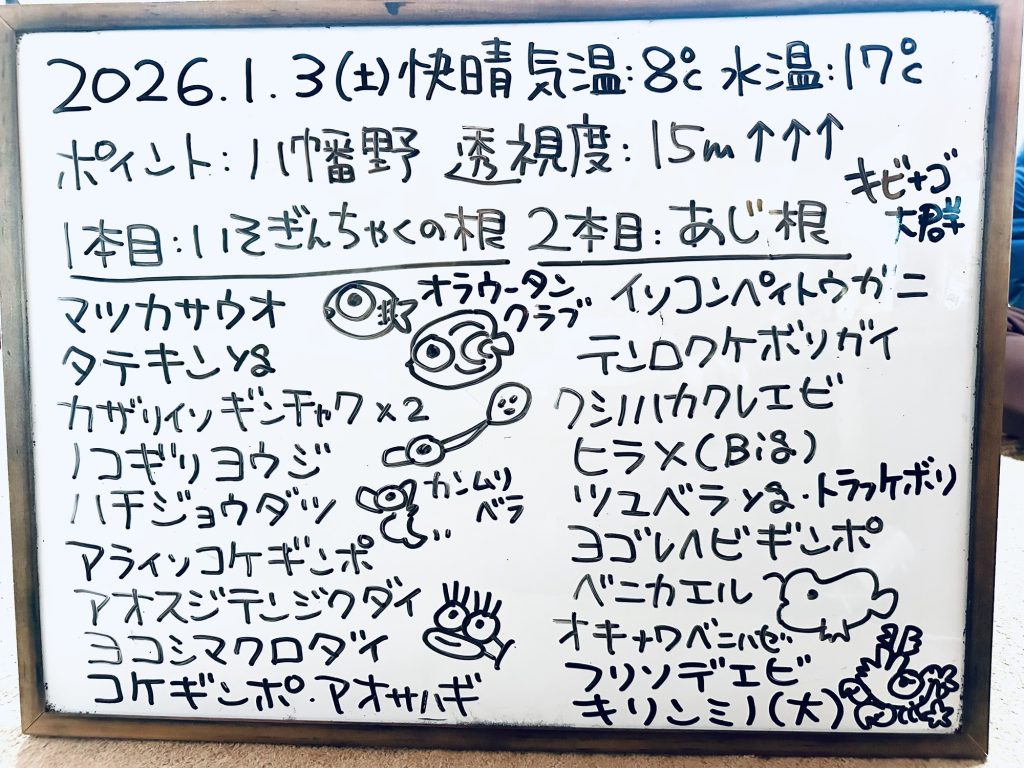 2026.1.3(土)快晴 気温:8℃ 水温:17℃
ポイント:八幡野 透視度:15m↑↑↑
キビナゴ
大群
1本目:いそぎんちゃくの根
マツカサウオ
タテキンyg
カザリイソギンチャク×2
ノコギリヨウジ
ハチジョウダツ
アライソコケギンポ
アオスジテンジクダイ
ヨコシマクロダイ
コケギンポ・アオサハギ
オラウータン
クラブ
カンムリ
ベラ
2本目:あじ根
イソコンペイトウガニ
テンロクケボリガイ
クシノハカクレエビ
ヒラメ(Big)
ツユベラyg・トラフケボリ
ヨゴレヘビギンポ
ベニカエル
オキナワベニハゼ
フリソデエビ
キリンミノ(大)